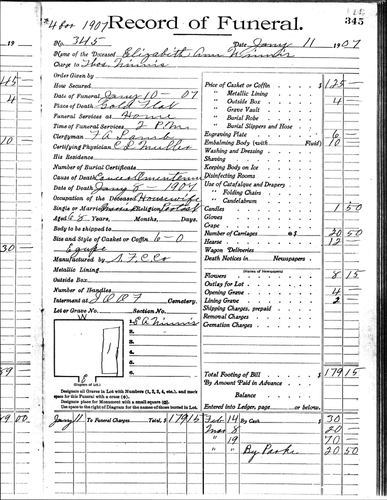 # 4 Nov 1907
Record of Funeral.
345
No. 345 Date Jany 11 1907
Name of the Deceased Elizabeth Ann
Charge to Thos.
Order Given by
Hour Secured
Date of Funeral Jany 10 - 07
Place of Death Gold Flat
Funeral Services at Home
Time of Funeral Services 2 P.M.
Clergyman
Certifying Physician C P Muller
His Residence
Number of Burial Certificate
Cause of Death
Date of Death Jany 8 - 1907
Occupation of the Deceased Housewife
Single or Married Religion
Aged 68 Years, Months, Days.
Body to be shipped to
Size and Style of Casket or Coffin 6-0
Manufactured by
Metallic Lining
Outside Box
Number of Handles
Interment at I O O F Cemetery.
Lot or Grave No. Section No.
W
1
E
(Diagram of Lot.)
Designate all Graves in Lot with Numbers (1, 2, 3, 4, etc.), and mark
space for this Funeral with a cross (+)
Designate place for Monument with a small square (□).
Use space to the right of Diagram for the names of those buried in Lot.
Jany 11 To Funeral Charges Total, $ 179 15
Price of Casket or Coffin $ 125 -
" Metallic Lining
" Outside Box 4 -
" Grave Vault
" Burial Robe
" Burial Slippers and Hose
Engraving Plate 6 -
Embalming Body (with Fluid) 10
Washing and Dressing
Shaving
Keeping Body on Ice
Disinfecting Rooms
Use of Catafalque and Drapery
" Folding Chairs
" Candelabrum
Candles 1 50
Gloves
Crape
Number of Carriages @ $ 20 50
Hearse 12
Wagon Deliveries
Death Notices in Newspapers
(Names of Newspapers)
Flowers 8 15
Outlay for Lot
Opening Grave 4 -
Lining Grave 2 -
Shipping Charges, prepaid
Removal Charges
Cremation Charges
Total Footing of Bill $ 179 15
By Amount Paid in Advance
Balance
Entered into Ledger, page or below.
Feb 14 By Cash $ 30
Mar 8 20
" 19 70
" " By 20 50